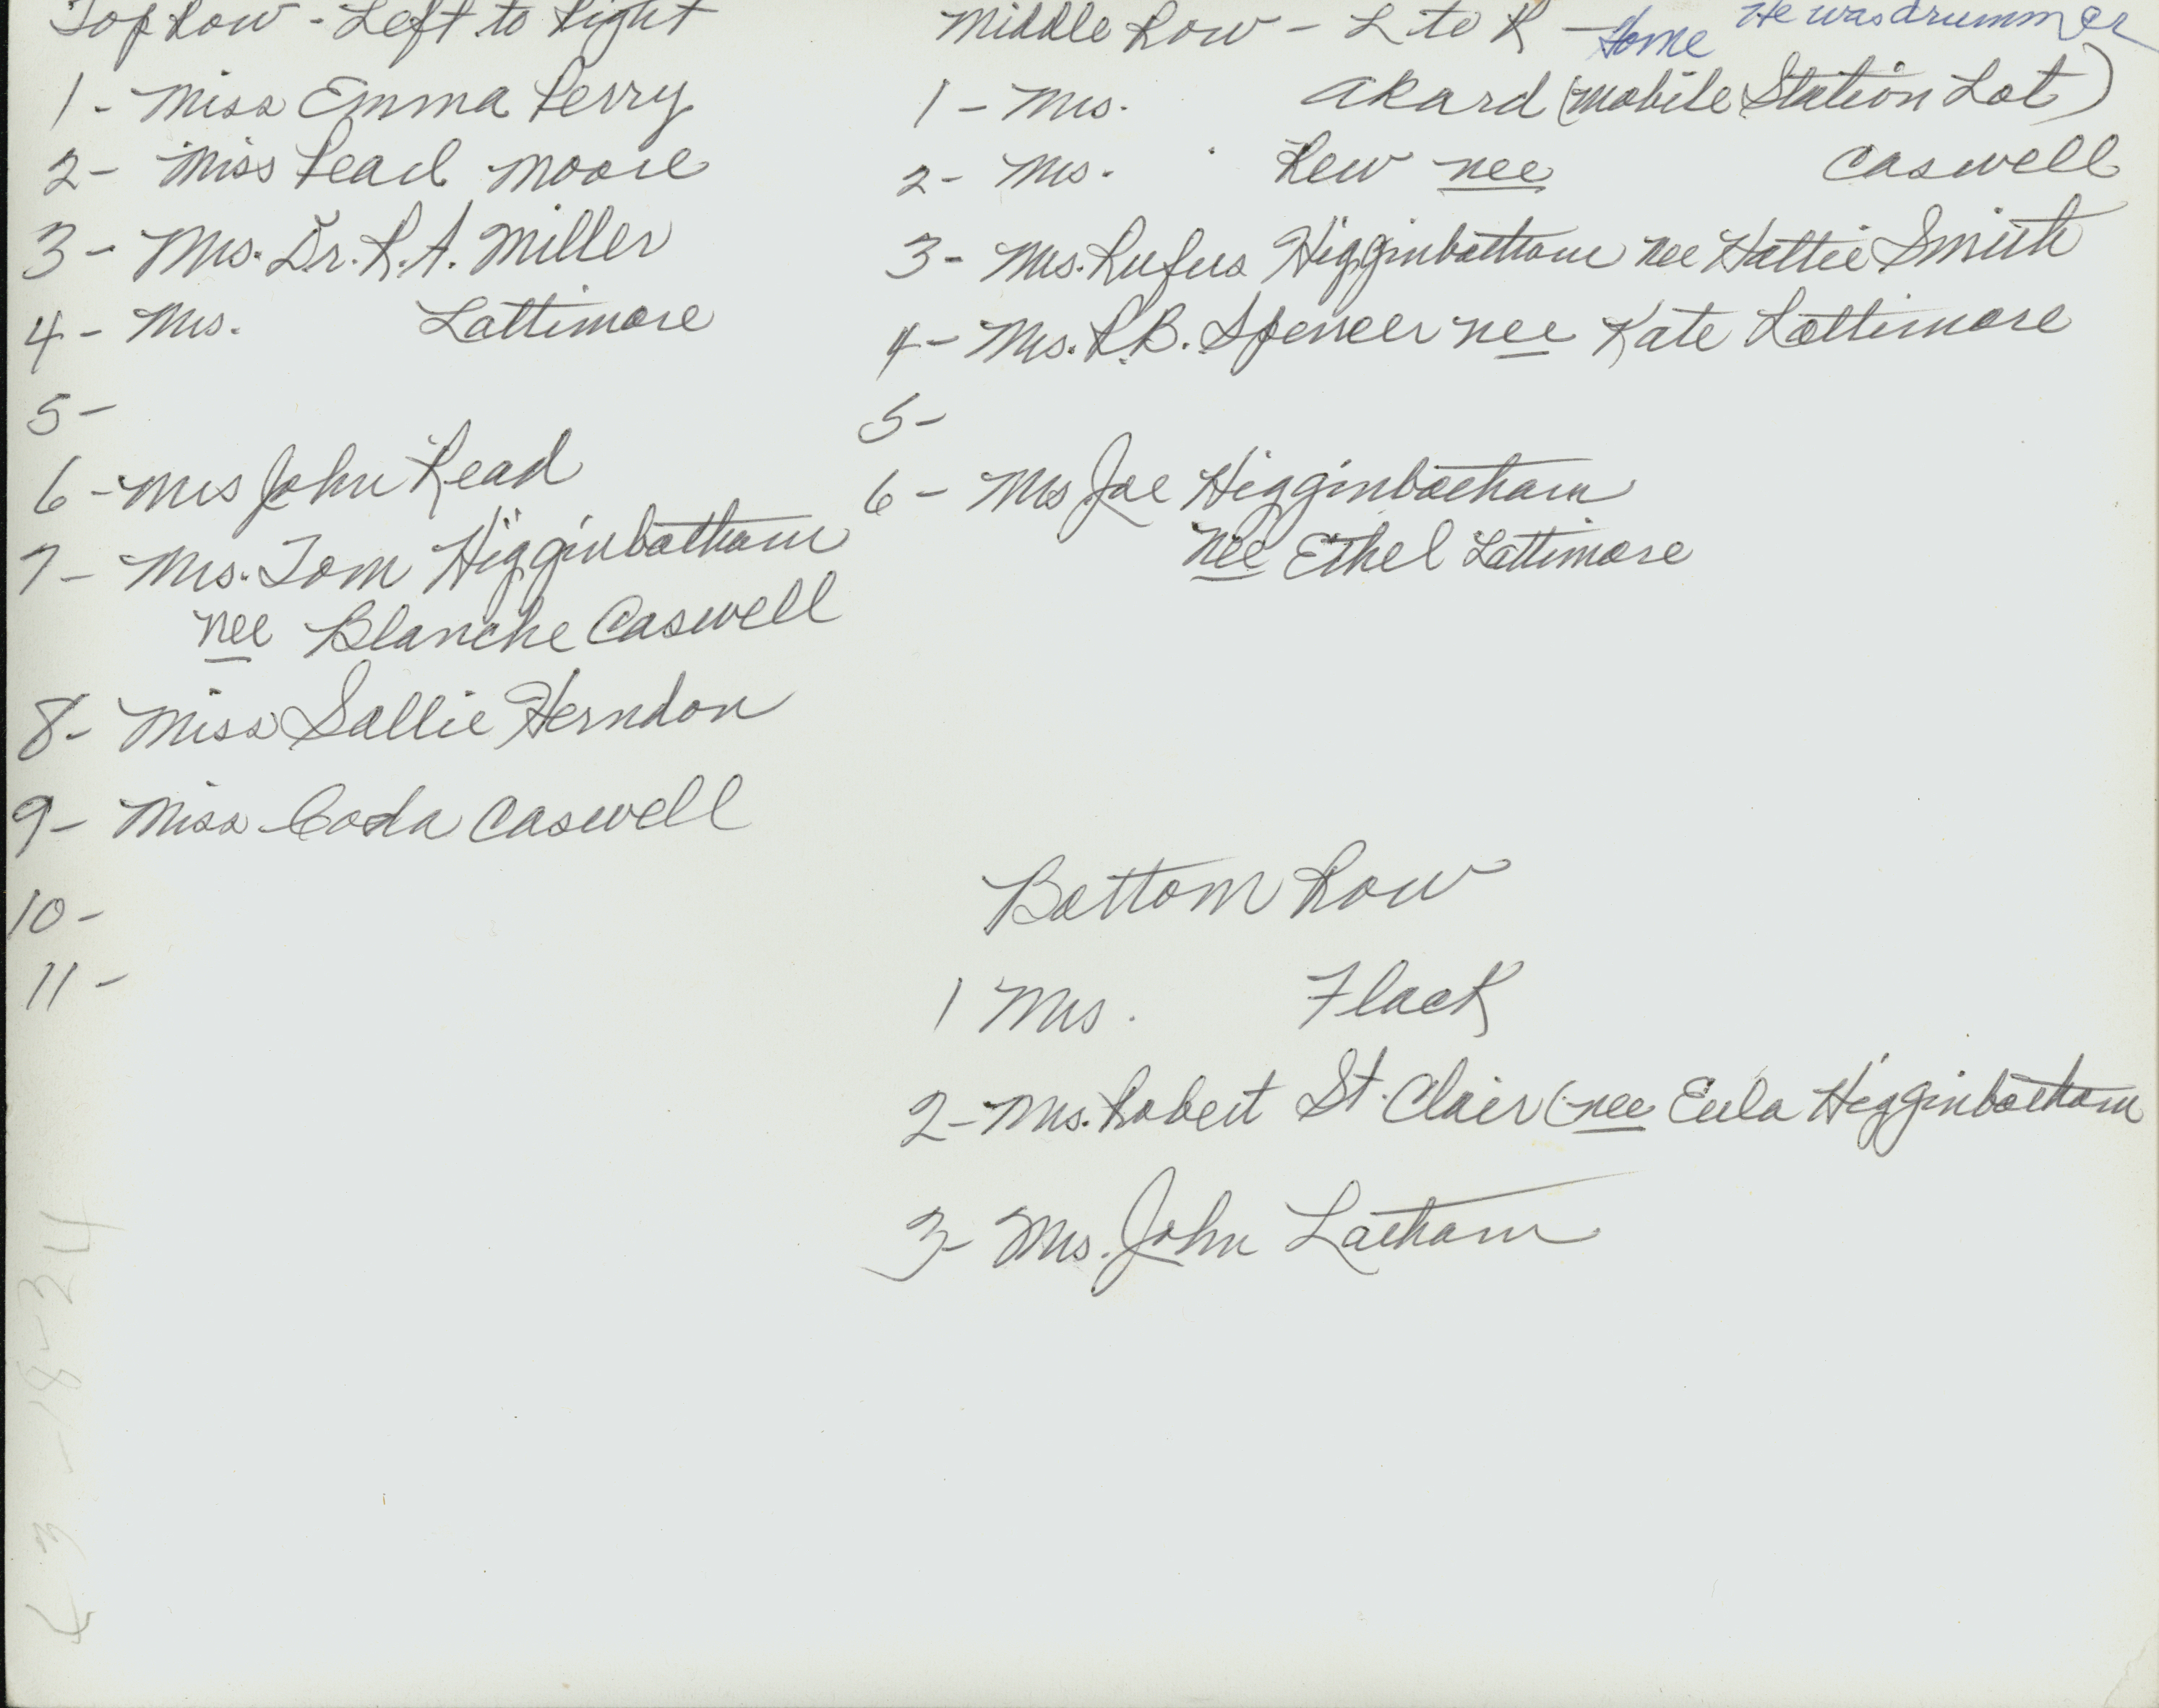 Top Row - Left to Right
1 - Miss Emma Perry
2 - Miss Pearl Moore
3 - Mrs. Dr. R.A. Miller
4 - Mrs. Lattimore
5 -
6 - Mrs John Read
7 - Mrs. Tom Higginbotham
nee Blanche Caswell
8 - Miss Sallie Herndon
9 - Miss Coda Caswell
10 -
11 -
Middle Row - L to R - Home He was drummer
1 - Mrs. Akard (Mobile Station Lot)
2 - Mrs. Rew nee Caswell
3 - Mrs. Rufus Higginbotham nee Hattie Smith
4 - Mrs. R.B. Spencer nee Kate Lattimore
5 -
6 - Mrs Joe Higginbotham
nee Ethel Lattimore
Bottom Row
1 Mrs. Flack
2 - Mrs. Robert St. Clair (nee Eula Higginbotham
3 - Mrs. John Latham